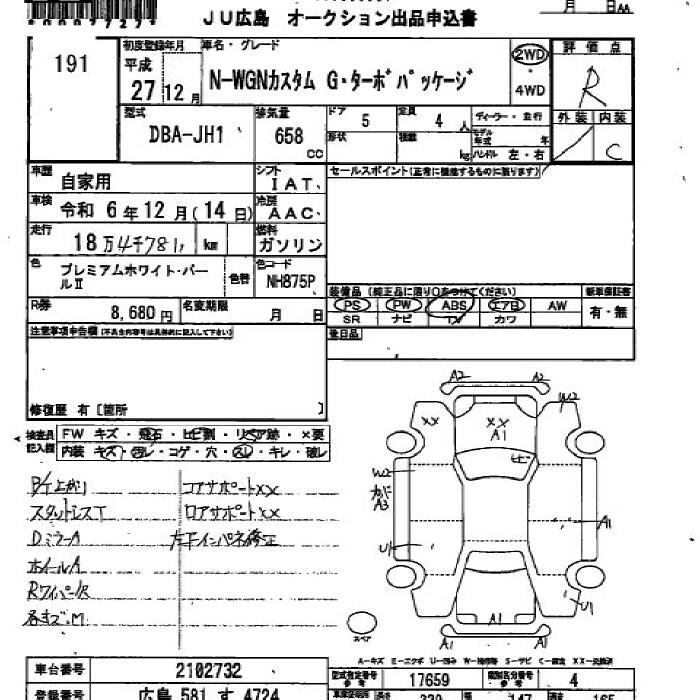 月 日 AA
*000772771*
JU広島 オークション出品申込書
191
初度登録年月
平成
27 12月
車名・グレード
N-WGNカスタム G・ターボパッケージ
2WD
4WD
評価点
R
型式
DBA-JH1
排気量
658
CC
ドア
5
形状
定員
4 人
積載
kg
ディーラー・並行
モデル年式 年
ハンドル 左・右
外装 内装
C
車歴
自家用
シフト
IAT
セールスポイント(正常に機能するものに限ります)
車検
令和 6年12月(14日)
冷房
AAC
走行
18万4千781 km
燃料
ガソリン
色
プレミアムホワイト・パールⅡ
色替
色コード
NH875P
装備品(純正品に限り○をつけてください)
新車保証書
PS PW ABS エアB AW
SR ナビ TV カワ
有・無
R券
8,680円
名変期限
月 日
注意事項申告欄(不具合内容等は具体的に記入して下さい)
後日品
修復歴 有〔箇所 〕
検査員記入欄
FW キズ・飛石・ヒビ割・リペア跡・×要
内装 キズ・汚レ・コゲ・穴・スレ・キレ・破レ
コアサポートXX
スタットレスT
ロアサポートXX
Dミラー A
左下インパネ修正
ホイールA
RワイパーR
各キズ、M
A2
A2
W2
XX
XX
A1
ヒビ
W2
A3
U1
A1
U1
A1
A1
スペア
A-キズ E-エクボ U-凹み W-補修巻 S-サビ C-腐蝕 XX-交換済
車台番号
2102732
型式指定番号
参考
17659
類別区分番号
参考
4
登録番号
広島 581 す 4724